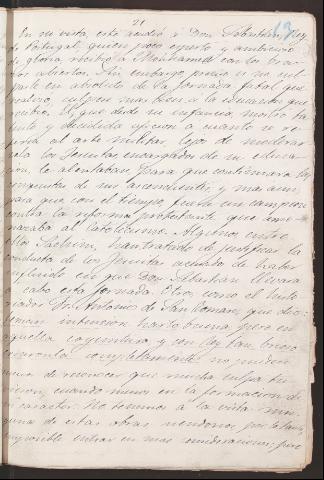 21
19
En su vista, este acudió á Don Sebastian, Rey
de Portugal, quien poco esperto y ambicioso
de gloria recibió á Mouhamed con los bra-
zos abiertos. Sin embargo pues si no cul-
pable en absoluto de la jornada fatal que
realizó, culpen mas bien á la educacion que
recibió. El, que desde su infancia mostró ta-
lento y decidida aficion á cuanto se re-
feria al arte militar, lejos de moderar-
sela los Jesuitas, encargados de su educa-
cion, le alentaban para que continuara las
conquistas de sus ascendientes, y mas aun,
para que con el tiempo, fuera un campeon
contra la reforma protestante que ame-
nazaba al catolicismo. Algunos, entre
ellos Sachini, han tratado de justificar la
conducta de los Jesuitas acusados de haber
influido en que Don Sebastian llevara
á cabo esta jornada. Otros, como el histo-
riador Fr. Antonio de San Roman, que dice
tenian intencion harto buena pero en
aquella coyuntura, y con tan
completamente no pueden
menos de reconocer que mucha culpa tu-
vieron, cuando menos en la formacion de
su caracter. No tenemos á la vista nin-
guna de estas obras siendonos por lo tanto,
imposible entrar en mas consideraciones; pero